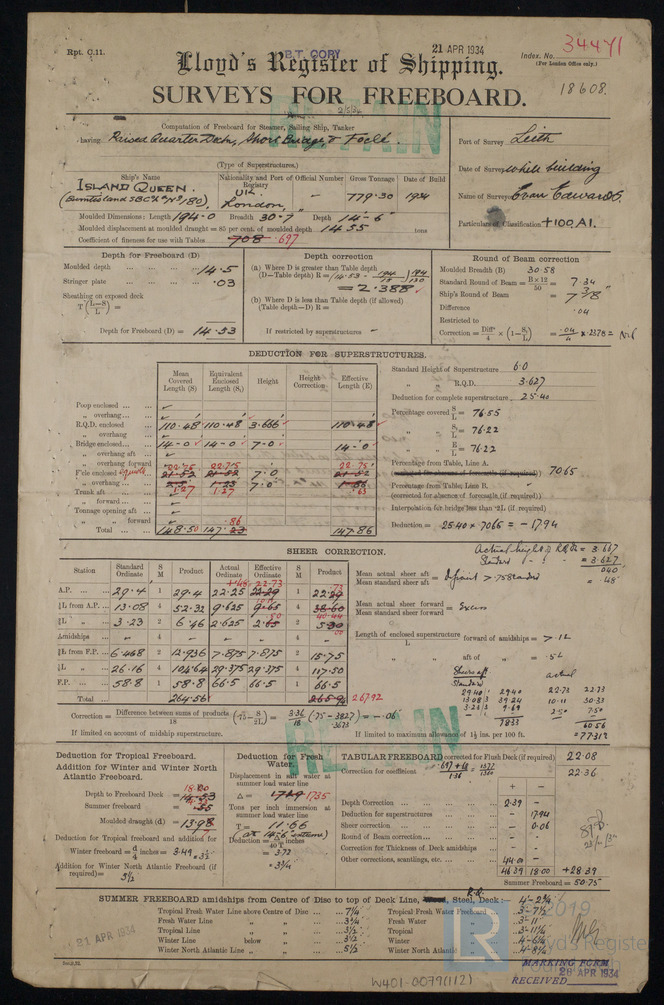 Rpt. C.11.
B.T. COPY
21 APR 1934
Index. No. 34471
(For London Office only.)
Lloyd's Register of Shipping.
18608.
SURVEYS FOR FREEBOARD.
Computation of Freeboard for Steamer, Sailing Ship, Tanker
having Raised Quarter Deck, Short Bridge & Focle.
(Type of Superstructures.)
Port of Survey Leith
Date of Survey while building
Name of Surveyor Evan Edwards.
Particulars of Classification +100A1.
Ship's Name
Nationality and Port of Registry
Official Number
Gross Tonnage
Date of Build
ISLAND QUEEN.
(Burntisland SBC No 180)
UK.
London,
779.30
1934
Moulded Dimensions: Length 194-0 Breadth 30-7 Depth 14-6
Moulded displacement at moulded draught = 85 per cent. of moulded depth 1455 tons
Coefficient of fineness for use with Tables .708 .697
Depth for Freeboard (D)
Moulded depth 14.5
Stringer plate .03
Sheathing on exposed deck
Depth for Freeboard (D) = 14.53
Depth correction
(a) Where D is greater than Table depth
(D—Table depth) R =
= 2.388
(b) Where D is less than Table depth (if allowed)
(Table depth—D) R =
If restricted by superstructures
Round of Beam correction
Moulded Breadth (B) 30.58
Standard Round of Beam = B×12/50 = 7.34
Ship's Round of Beam = 7 3/8
Difference .04
Restricted to
Correction = Diff/4 × (1−S/L) = .04/4 × .2378 = Nil
DEDUCTION FOR SUPERSTRUCTURES.
Mean Covered Length (S)
Equivalent Enclosed Length (S₁)
Height
Height Correction
Effective Length (E)
Poop enclosed
„ overhang
R.Q.D. enclosed 110.48 110.48 3.666 110.48
„ overhang
Bridge enclosed 14-0 14-0 7-0 14-0
„ overhang aft
„ overhang forward
F'cle enclosed 22.75 22.75 7.0 22.75
„ overhang
Trunk aft 1.27 1.27 .63
„ forward
Tonnage opening aft
„ „ forward
Total 148.50 147.23 .86 147.86
Standard Height of Superstructure 6.0
„ „ R.Q.D. 3.627
Deduction for complete superstructure 25.40
Percentage covered S/L = 76.55
„ S₁/L = 76.22
„ E/L = 76.22
Percentage from Table, Line A.
(corrected for absence of forecastle (if required)) 70.65
Percentage from Table, Line B.
(corrected for absence of forecastle (if required))
Interpolation for bridge less than ·2L (if required)
Deduction = 25.40 × .7065 = − 17.94
SHEER CORRECTION.
Station
Standard Ordinate
S M
Product
Actual Ordinate
Effective Ordinate
S M
Product
A.P. 29.4 1 29.4 22.25 22.29 1 22.29
⅙L from A.P. 13.08 4 52.32 9.625 9.65 4 38.60
⅓L „ 3.23 2 6.46 2.625 2.65 2 5.30
Amidships 4 4
⅓L from F.P. 6.468 2 12.936 7.875 7.875 2 15.75
⅙L „ 26.16 4 104.64 29.375 29.375 4 117.50
F.P. 58.8 1 58.8 66.5 66.5 1 66.5
Total 264.56 265.94 267.92
Mean actual sheer aft
Mean standard sheer aft
Mean actual sheer forward
Mean standard sheer forward = Excess
Length of enclosed superstructure
L forward of amidships = 7.12
„ aft of „ = .52
Sheers aft
Standard
actual
7833
60.56
= .7731%
Correction = Difference between sums of products/18 (·75 − S/2L) = 3.36/18 (.75 − .3827) = −.06
If limited on account of midship superstructure.
If limited to maximum allowance of 1½ ins. per 100 ft.
Deduction for Tropical Freeboard.
Addition for Winter and Winter North Atlantic Freeboard.
Depth to Freeboard Deck =
Summer freeboard =
Moulded draught (d) = 13.98
Deduction for Tropical freeboard and addition for
Winter freeboard = d/4 inches = 3.49 = 3½
Addition for Winter North Atlantic Freeboard (if required) = 5½
Deduction for Fresh Water.
Displacement in salt water at summer load water line
Δ = 1729 1735
Tons per inch immersion at summer load water line
T = 11.66
Deduction = Δ/40 T inches
= 3.72
= 3¾
TABULAR FREEBOARD corrected for Flush Deck (if required) 22.08
Correction for coefficient .697+.68/1.36 = 1377/1360 22.36
+ −
Depth Correction 2.39 −
Deduction for superstructures − 17.94
Sheer correction − 0.06
Round of Beam correction − −
Correction for Thickness of Deck amidships − −
Other corrections, scantlings, etc. 44.00 −
46.39 18.00 +28.39
Summer Freeboard = 50.75
SUMMER FREEBOARD amidships from Centre of Disc to top of Deck Line, Wood, Steel, Deck: R.Q. 4-2¾
Tropical Fresh Water Line above Centre of Disc 7¼
Fresh Water Line „ „ 3¾
Tropical Line „ „ 3½
Winter Line below „ 3½
Winter North Atlantic Line „ „ 5½
Tropical Fresh Water Freeboard 3-7½
Fresh Water „ 3-11
Tropical „ 3-11¼
Winter „ 4-6¼
Winter North Atlantic „ 4-8¼
21 APR 1934
MARKING FORM
RECEIVED 28 APR 1934
W401-0079(1/2)
LR
2019
Lloyd's Register